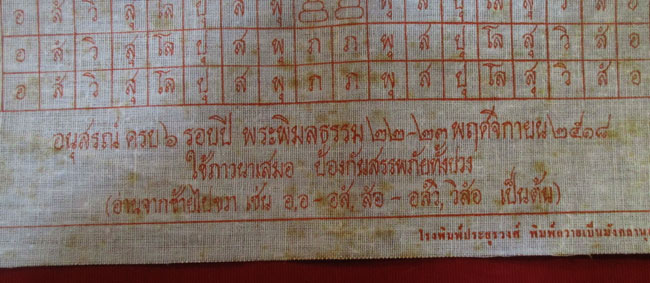 อ สํ วิ สุ โล ปุ ส พุ ภ ภ พุ ส ปุ โล สุ วิ สํ อ
อ สํ วิ สุ โล ปุ ส พุ ภ ภ พุ ส ปุ โล สุ วิ สํ อ
อนุสรณ์ ครบ ๖ รอบปี พระพิมลธรรม ๒๒-๒๓ พฤศจิกายน ๒๕๑๘
ใช้ภาวนาเสมอ ป้องกันสรรพภัยทั้งปวง
(อ่านจากซ้ายไปขวา เช่น อ,อ - อสํ, สํอ - อสํวิ, วิสํอ เป็นต้น)
โรงพิมพ์ประยูรวงศ์ พิมพ์ถวายเป็นมังคลานุ